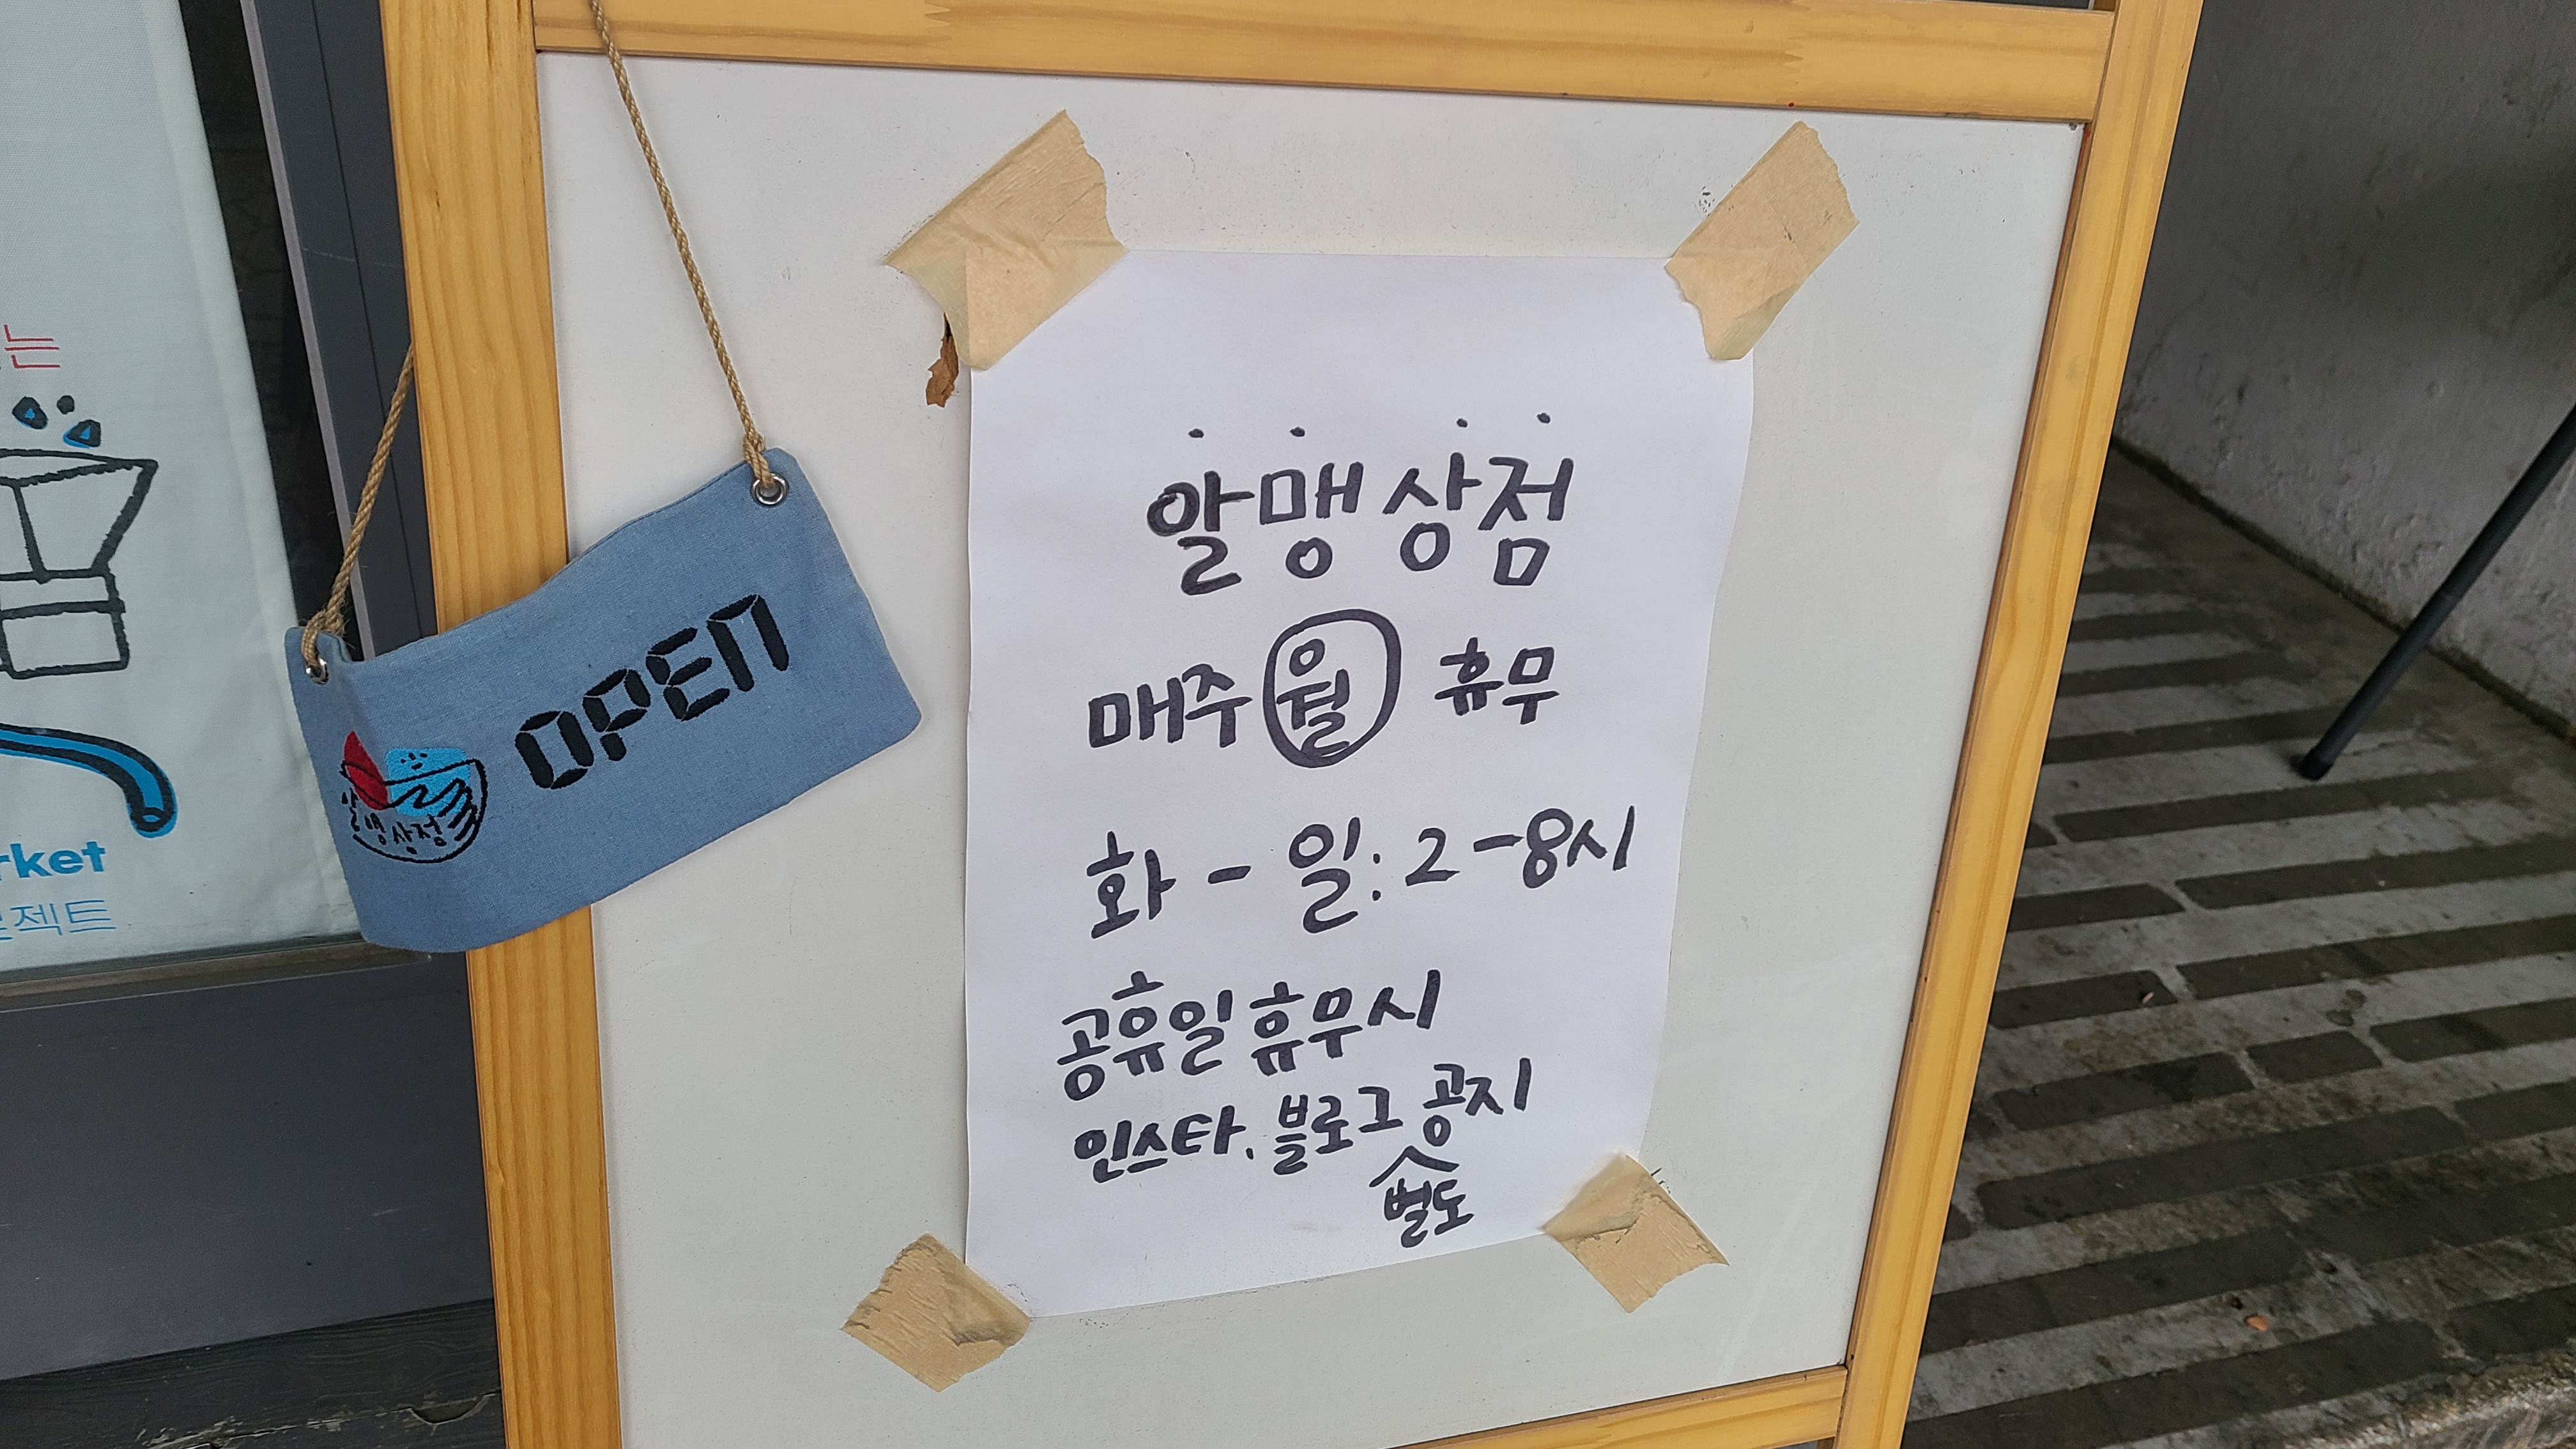 는
rket
젝트
OPEN
알맹상점
알맹상점
매주 월 휴무
화 - 일: 2 - 8시
공휴일 휴무시
인스타. 블로그 별도 공지